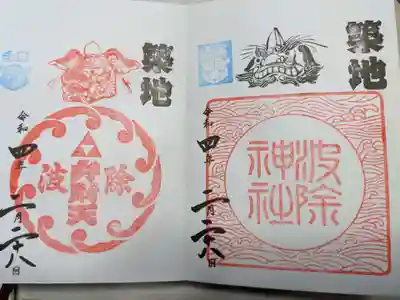 築地
波除
神社
令和四年
二月二十八日
築地
波除
令和四年
二月二十八日